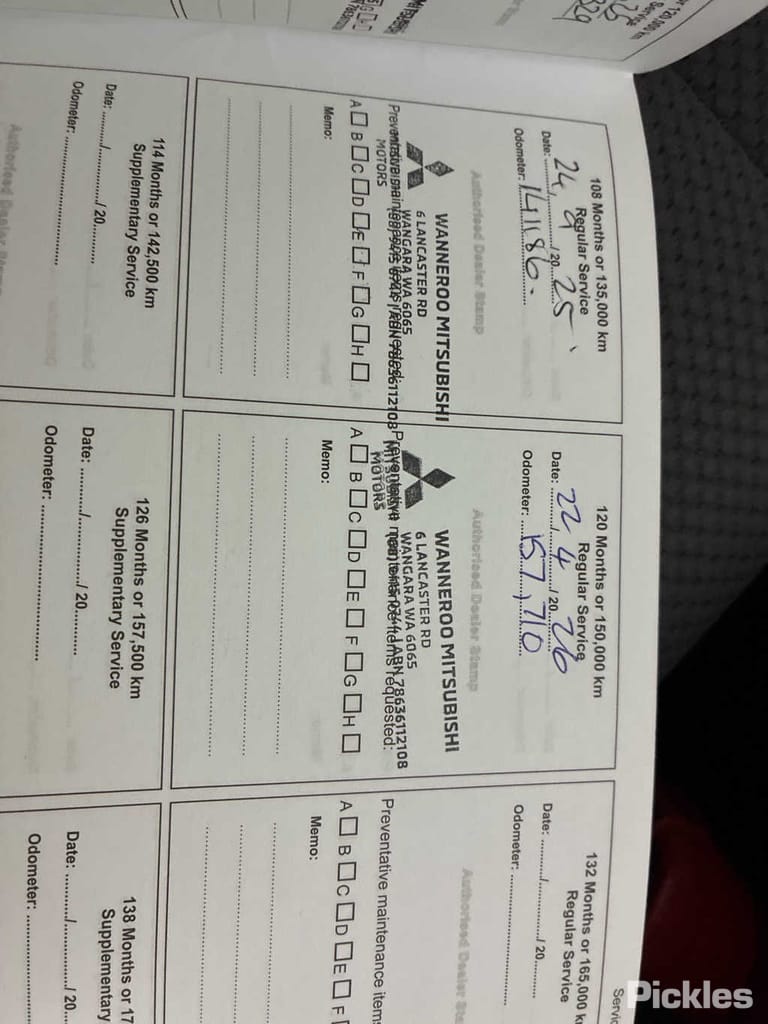 or 120,000 km
Service
25
329
108 Months or 135,000 km
Regular Service
Date: 24/9/2025
Odometer: 141186.
Authorised Dealer Stamp
WANNEROO MITSUBISHI
6 LANCASTER RD
WANGARA WA 6065
ABN 78636112108
MOTORS
Preventative maintenance items requested:
A B C D E F G H
Memo:
120 Months or 150,000 km
Regular Service
Date: 22/4/2026
Odometer: 157,710
Authorised Dealer Stamp
WANNEROO MITSUBISHI
6 LANCASTER RD
WANGARA WA 6065
ABN 78636112108
MITSUBISHI
MOTORS
Preventative maintenance items requested:
A B C D E F G H
Memo:
132 Months or 165,000 k
Regular Service
Date: ........./........./ 20.........
Odometer: ..............................
Authorised Dealer Sta
Preventative maintenance items
A B C D E F
Memo:
114 Months or 142,500 km
Supplementary Service
Date: ........./........./ 20.........
Odometer: ..............................
Authorised Dealer Stamp
126 Months or 157,500 km
Supplementary Service
Date: ........./........./ 20.........
Odometer: ..............................
138 Months or 17
Supplementary
Date: ........./........./ 20...
Odometer: ....................
Servic
Pickles